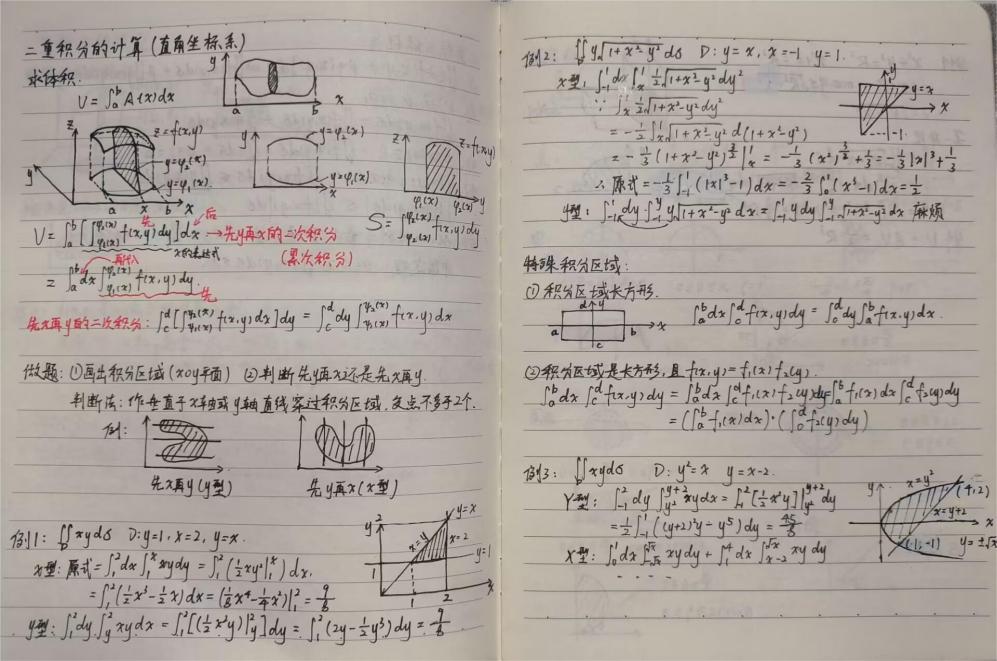 二重积分的计算(直角坐标系)
求体积.
V = ∫_a^b A(x)dx
y
a b x
z
z=f(x,y)
y=φ₂(x)
y=φ₁(x)
y
a x b x
y
y=φ₂(x)
y=φ₁(x)
x
z
z=f(x,y)
φ₁(x) φ₂(x) y
先 后
V = ∫_a^b [∫_{φ₁(x)}^{φ₂(x)} f(x,y)dy]dx → 先y再x的二次积分
x的表达式
(累次积分)
S = ∫_{φ₂(x)}^{φ₁(x)} f(x,y)dy
再代入
= ∫_a^b dx ∫_{φ₁(x)}^{φ₂(x)} f(x,y)dy.
先
先x再y的二次积分: ∫_c^d [∫_{φ₁(x)}^{φ₂(x)} f(x,y)dx]dy = ∫_c^d dy ∫_{φ₁(x)}^{φ₂(x)} f(x,y)dx
做题: ①画出积分区域(xoy平面) ②判断先y再x还是先x再y.
判断法: 作垂直于x轴或y轴直线穿过积分区域, 交点不多于2个.
例:
先x再y(y型) 先y再x(x型)
例1: ∬_D xydσ D: y=1, x=2, y=x.
x型: 原式 = ∫_1^2 dx ∫_1^x xydy = ∫_1^2 (½xy²|_1^x) dx.
= ∫_1^2 (½x³-½x)dx = (⅛x⁴-¼x²)|_1^2 = 9/8
y型: ∫_1^2 dy ∫_y^2 xydx = ∫_1^2 [(½x²y)|_y^2]dy = ∫_1^2 (2y-½y³)dy = 9/8
y
2
y=x
x=y
x=2
y=1
1
1 2 x
例2: ∬_D y√(1+x²-y²)dσ D: y=x, x=-1 y=1.
x型: ∫_{-1}^1 dx ∫_x^1 ½√(1+x²-y²)dy²
∵ ∫_x^1 ½√(1+x²-y²)dy²
= -½∫_x^1 √(1+x²-y²) d(1+x²-y²)
= -⅓(1+x²-y²)^{3/2}|_x^1 = -⅓(x²)^{3/2}+⅓ = -⅓|x|³+⅓
∴ 原式 = -⅓∫_{-1}^1 (|x|³-1)dx = -⅔∫_0^1 (x³-1)dx = ½
y型: ∫_{-1}^1 dy ∫_{-1}^y y√(1+x²-y²)dx = ∫_{-1}^1 ydy ∫_{-1}^y √(1+x²-y²)dx 麻烦
y
y=x
x
-1
特殊积分区域:
①积分区域长方形.
d y
a b x
c
∫_a^b dx ∫_c^d f(x,y)dy = ∫_c^d dy ∫_a^b f(x,y)dx.
②积分区域是长方形, 且f(x,y)=f₁(x)f₂(y).
∫_a^b dx ∫_c^d f(x,y)dy = ∫_a^b dx ∫_c^d f₁(x)f₂(y)dy = ∫_a^b f₁(x)dx ∫_c^d f₂(y)dy
= (∫_a^b f₁(x)dx)·(∫_c^d f₂(y)dy)
例3: ∬_D xydσ D: y²=x y=x-2.
Y型: ∫_{-1}^2 dy ∫_{y²}^{y+2} xydx = ∫_{-1}^2 [½x²y]|_{y²}^{y+2} dy
= ½∫_{-1}^2 ((y+2)²y-y⁵)dy = 45/8
X型: ∫_0^1 dx ∫_{-√x}^{√x} xydy + ∫_1^4 dx ∫_{x-2}^{√x} xydy
....
y
x=y²
(4,2)
x=y+2
x
(1,-1)
y=±√x